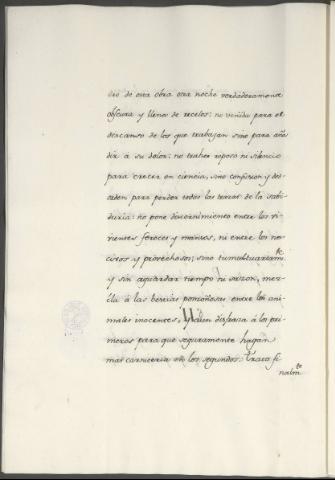 dio de esta obra otra noche verdaderamente
obscura y llena de recelos: no venida para el
descanso de los que trabajan sino para aña
dir à su dolor: no traher reposo ni silencio
para crecer en ciencia, sino confusion y des
orden para perder todas las tareas de la sabi
duria: no pone discernimiento entre los vi
vientes feroces y mansos, ni entre los no
civos y provechosos; sino tumultuariam.te
y sin aguardar tiempo ni sazon, mez
cla à las bestias ponzoñosas entre los ani
males inocentes, y aun disfraza à los pri
meros para que seguramente hagan
mas carniceria en los segundos. Trata fi
nalm.te